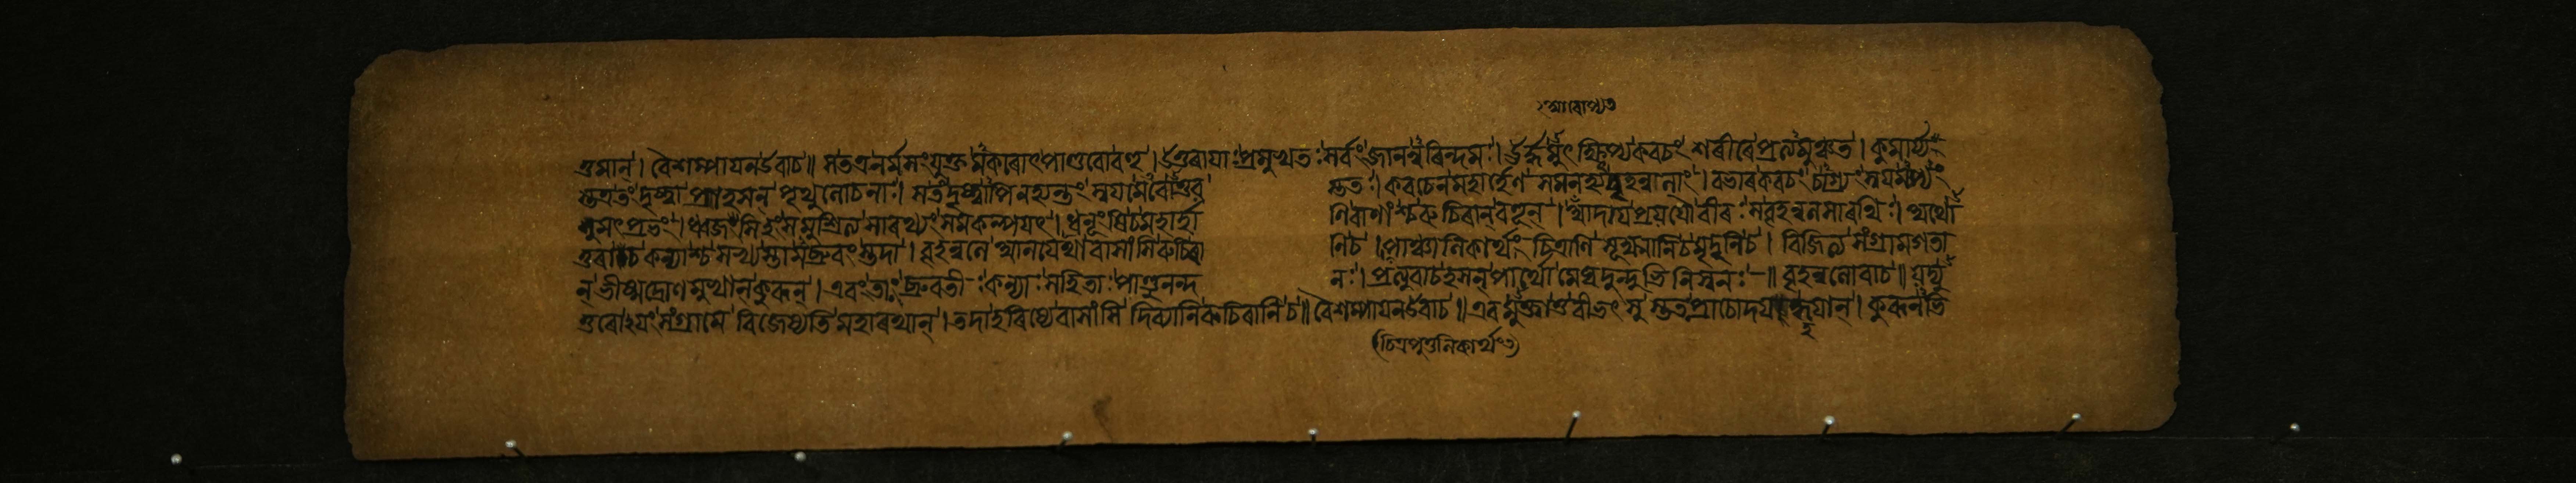 আরোপ্যত
ত্তমান্। বৈশম্পায়ন উবাচ॥ স তত্র নর্মসংযুক্তমকরোৎ পাণ্ডবো বহু। উত্তরায়াঃ প্রমুখতঃ সর্বং জানন্নরিন্দমঃ। ঊর্দ্ধমুৎক্ষিপ্য কবচং শরীরে প্রত্যমুঞ্চত। কুমার্য্য
স্তত্র তং দৃষ্ট্বা প্রাহসন্ পৃথুলোচনাঃ। স তং দৃষ্ট্বা বিমুহ্যন্তং স্বয়মেবোত্তর স্ততঃ। কবচেন মহার্হেণ সমনহ্যদ্বৃহন্নলাং। স বিভ্রৎ কবচং চাগ্র্যং স্বয়মপ্যং
শুমৎপ্রভং। ধ্বজং সিংহং সমুচ্ছ্রিত্য সারথ্যং সমকল্পয়ৎ। ধনূংষি চ মহার্হা ণি বাণাংশ্চ রুচিরান্ বহূন্। আদায় প্রযযৌ বীরঃ স বৃহন্নলসারথিঃ। অথো
ত্তরা চ কন্যাশ্চ সখ্যস্তামব্রুবংস্তদা। বৃহন্নলে আনয়েথা বাসাংসি রুচিরা নি চ। পাঞ্চালিকার্থং চিত্রাণি সূক্ষ্মানি চ মৃদূনি চ। বিজিত্য সংগ্রামগতা
ন্ ভীষ্মদ্রোণমুখান্ কুরূন্। এবং তাঃ ব্রুবতীঃ কন্যাঃ সহিতাঃ পাণ্ডুনন্দ নঃ। প্রত্যুবাচ হসন্ পার্থো মেঘদুন্দুভিনিস্বনঃ॥ বৃহন্নলোবাচ॥ যদ্যু
ত্তরোঽয়ং সংগ্রামে বিজেষ্যতি মহারথান্। তদাহরিষ্যে বাসাংসি দিব্যানি রুচিরানি চ॥ বৈশম্পায়ন উবাচ॥ এবমুক্ত্বা তু বীভৎসুস্ততঃ প্রাচোদয়দ্ধয়ান্। কুরূনভি
চিত্রপুত্তলিকার্থং